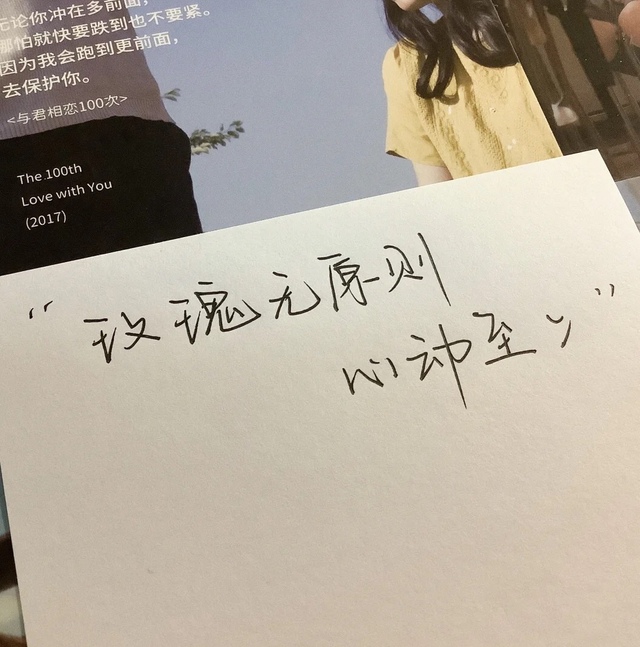 无论你冲在多前面，
哪怕就快要跌到也不要紧。
因为我会跑到更前面，
去保护你。
<与君相恋100次>
The 100th
Love with You
(2017)
“玫瑰无原则
心动至上”